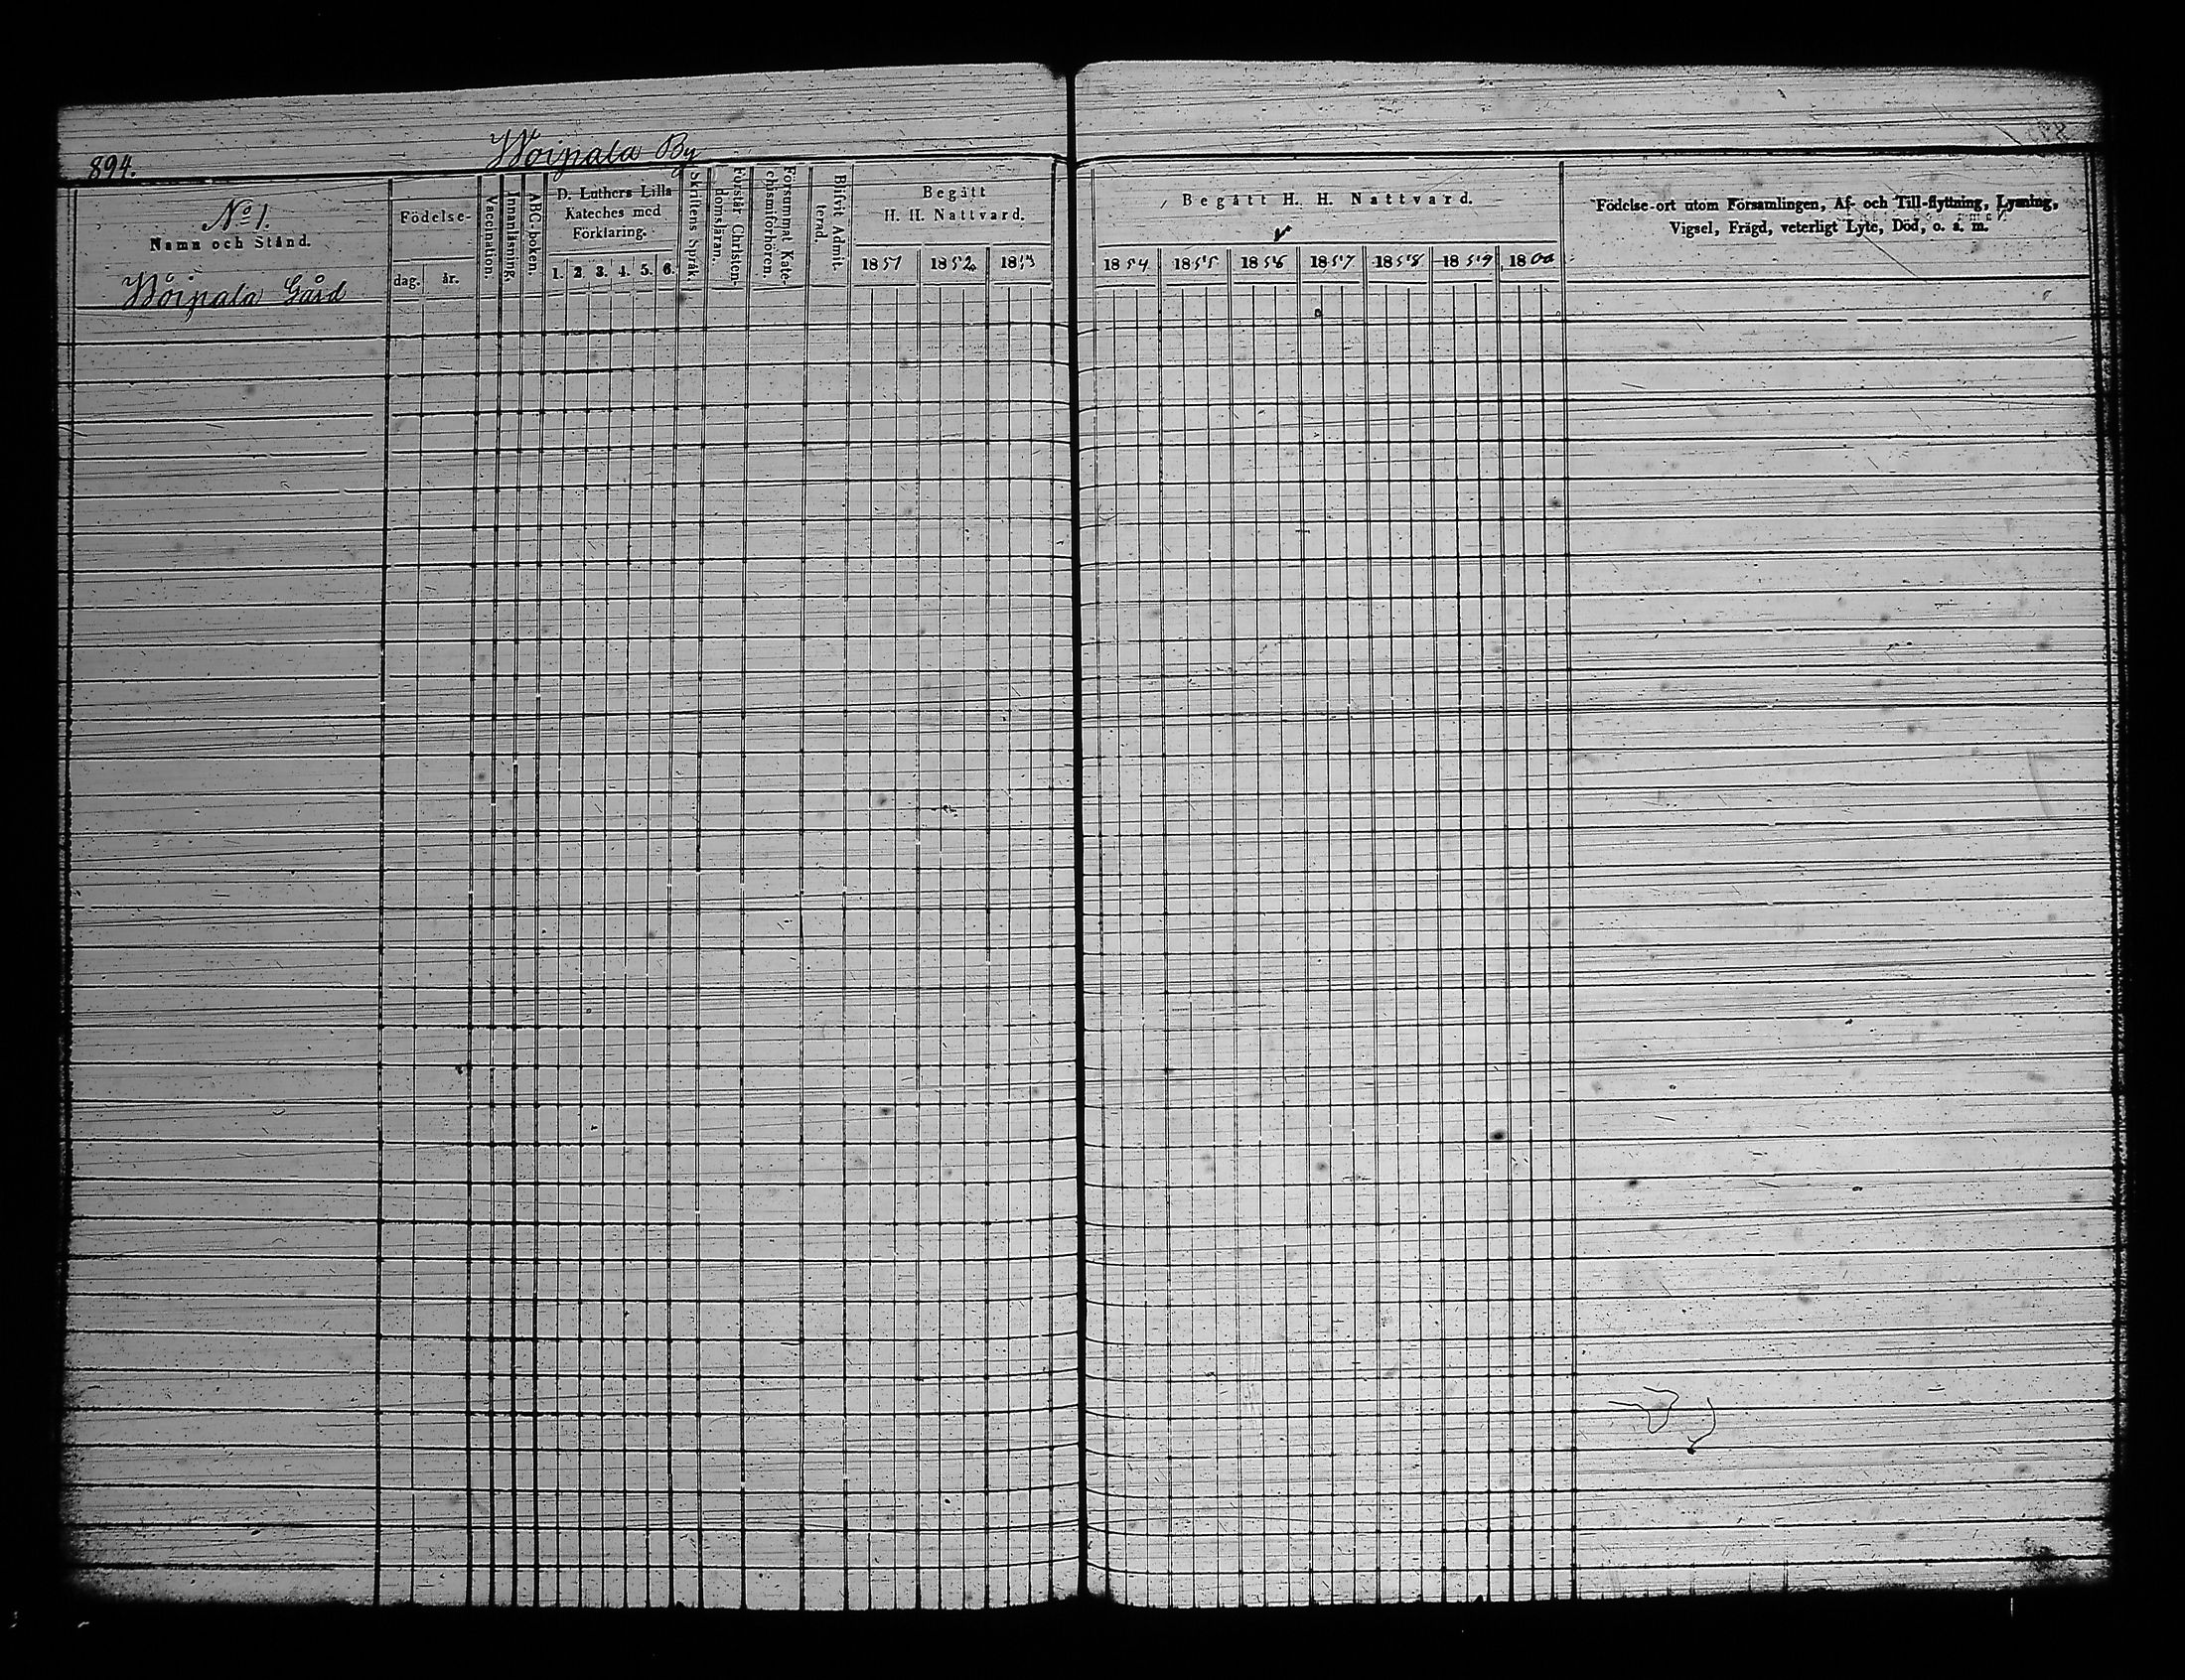 894.
Woipala By
No 1.
Namn och Stånd.
Woipala Gård
Födelse-
dag. år.
Vaccination.
Innanläsning.
ABC-boken.
D. Luthers Lilla
Kateches med
Förklaring.
1. 2. 3. 4. 5. 6.
Skriftens Språk.
Förstår Christen-
domsläran.
Försummat Kate-
chismiförhören.
Blifvit Admit-
terad.
Begått
H. H. Nattvard.
1851 1852 1853
Begått H. H. Nattvard.
1854 1855 1856 1857 1858 1859 1860
Födelse-ort utom Församlingen, Af- och Till-flyttning, Lysning,
Vigsel, Frägd, veterligt Lyte, Död, o. s. m.